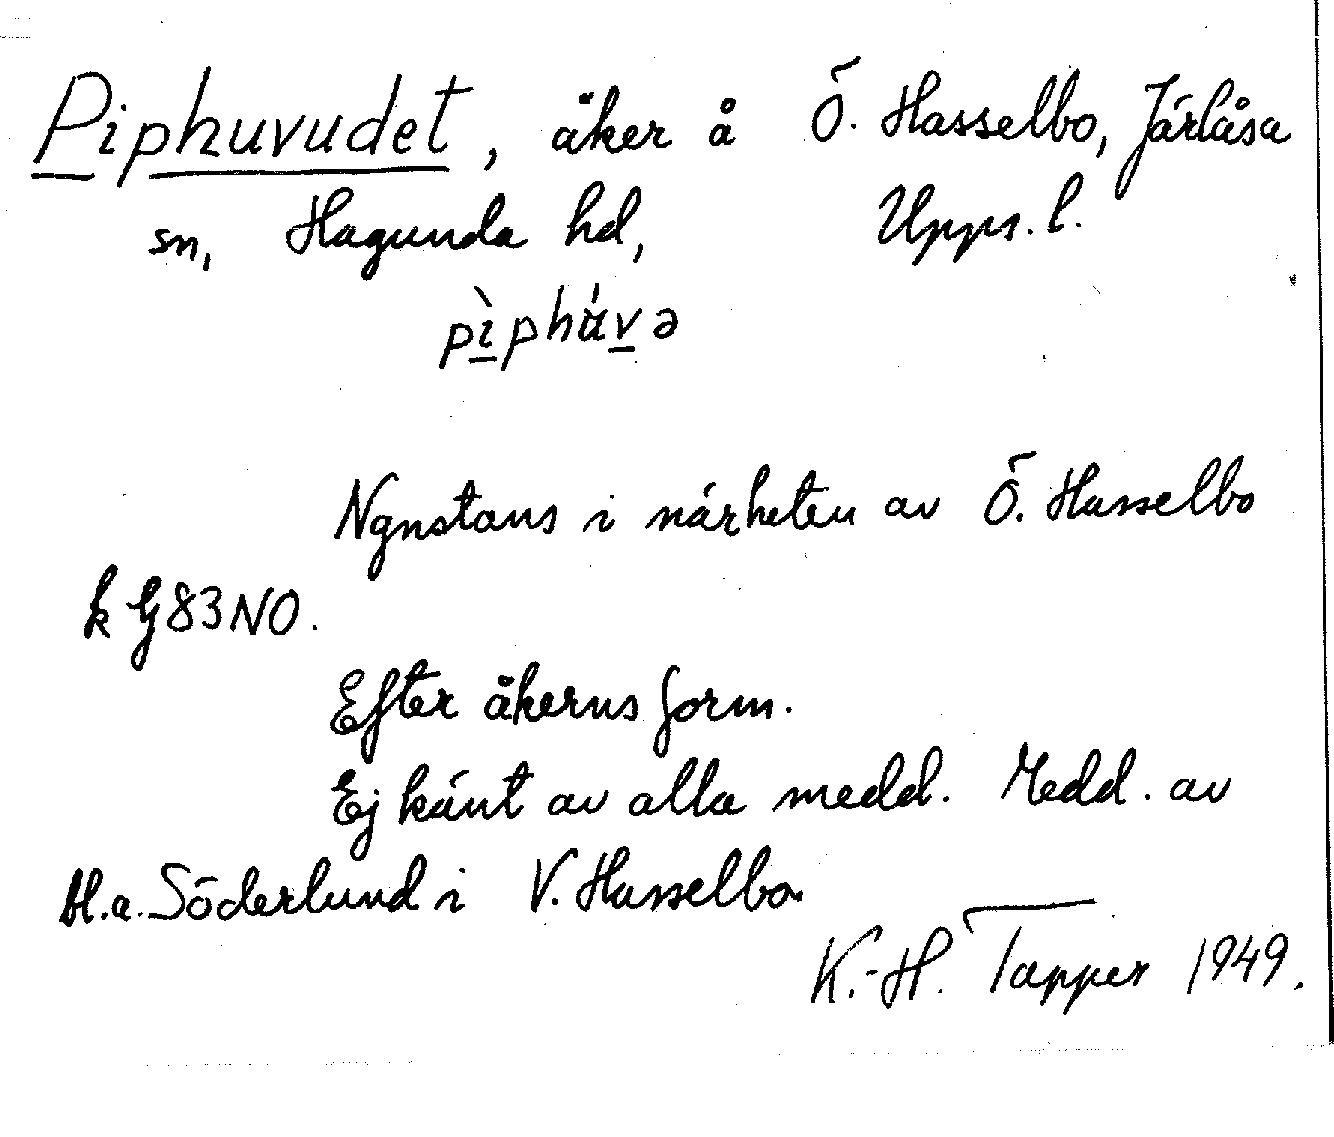 Piphuvudet, åker å Ö. Hasselbo, Järlåsa
sn, Hagunda hd, Upps. l.
pìphúvə
Ngnstans i närheten av Ö. Hasselbo
k G83NO.
Efter åkerns form.
Ej känt av alla medd. Medd. av
bl.a. Söderlund i V. Hasselbo.
K.-H. Tapper 1949.